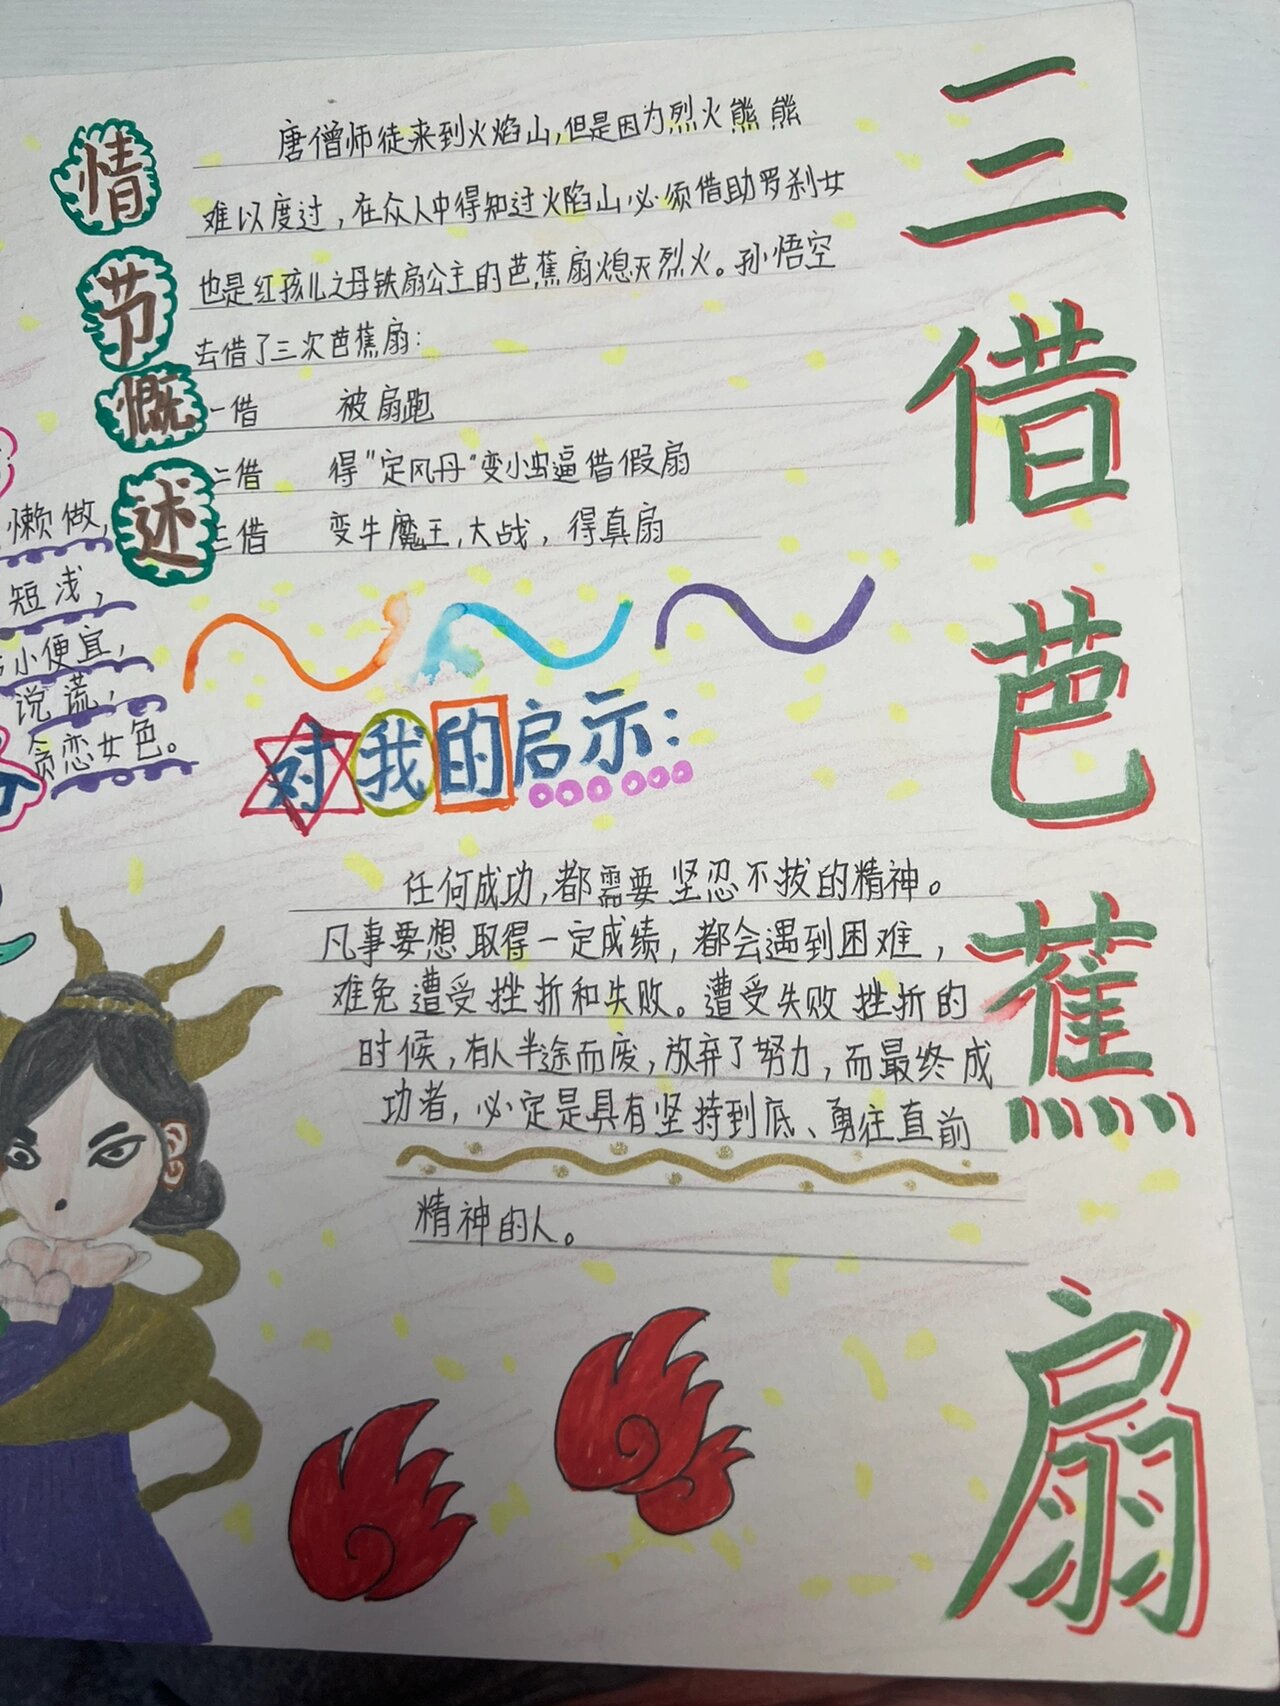 三借芭蕉扇
情节慨述
唐僧师徒来到火焰山,但是因为烈火熊熊
难以度过,在众人中得知过火焰山必须借助罗刹女
也是红孩儿之母铁扇公主的芭蕉扇熄灭烈火。孙悟空
去借了三次芭蕉扇:
一借 被扇跑
二借 得"定风丹"变小虫逼借假扇
三借 变牛魔王,大战,得真扇
懒做,
短浅,
小便宜,
说谎,
贪恋女色。
对我的启示:
任何成功,都需要坚忍不拔的精神。
凡事要想取得一定成绩,都会遇到困难,
难免遭受挫折和失败。遭受失败挫折的
时候,有人半途而废,放弃了努力,而最终成
功者,必定是具有坚持到底、勇往直前
精神的人。